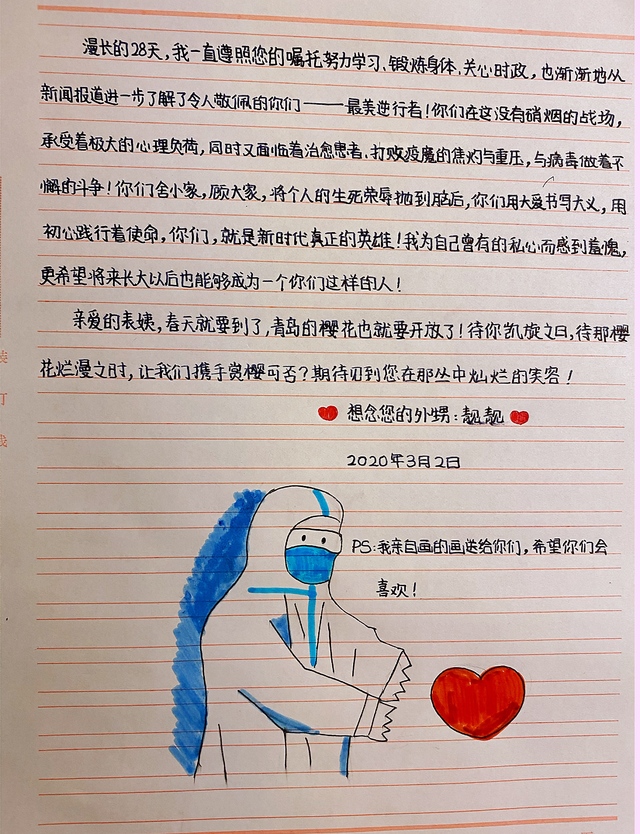 漫长的28天，我一直遵照您的嘱托努力学习、锻炼身体、关心时政，也渐渐地从
新闻报道进一步了解了令人敬佩的你们——最美逆行者！你们在这没有硝烟的战场，
承受着极大的心理负荷，同时又面临着治愈患者、打败疫魔的焦灼与重压，与病毒做着不
懈的斗争！你们舍小家，顾大家，将个人的生死荣辱抛到脑后，你们用大爱书写大义，用
初心践行着使命，你们，就是新时代真正的英雄！我为自己曾有的私心而感到羞愧，
更希望将来长大以后也能够成为一个你们这样的人！
亲爱的表姨，春天就要到了，青岛的樱花也就要开放了！待你凯旋之日，待那樱
花烂漫之时，让我们携手赏樱可否？期待见到您在那丛中灿烂的笑容！
想念您的外甥：靓靓
2020年3月2日
PS：我亲自画的画送给你们，希望你们会
喜欢！
装
订
线